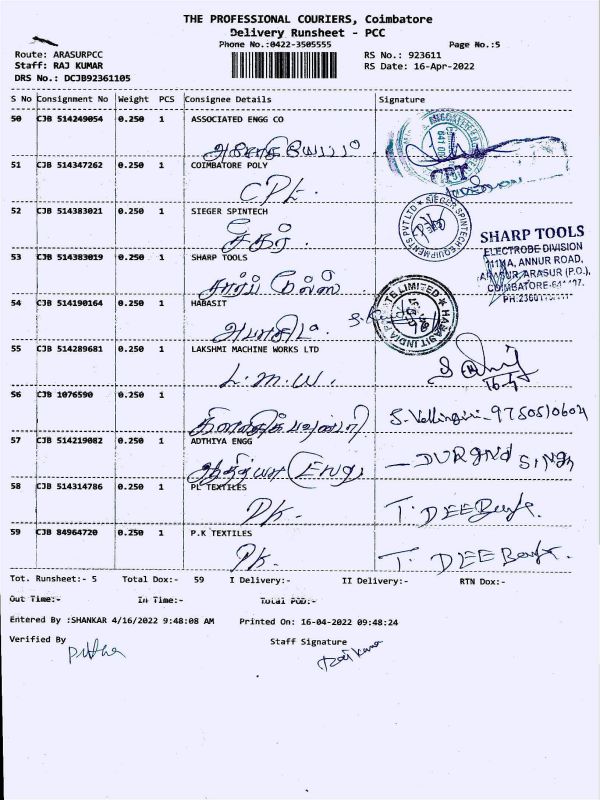 THE PROFESSIONAL COURIERS, Coimbatore
Delivery Runsheet - PCC
Phone No.:0422-3505555 Page No.:5
Route: ARASURPCC RS No.: 923611
Staff: RAJ KUMAR RS Date: 16-Apr-2022
DRS No.: DCJB92361105
S No Consignment No Weight PCS Consignee Details Signature
50 CJB 514249054 0.250 1 ASSOCIATED ENGG CO
51 CJB 514347262 0.250 1 COIMBATORE POLY
CPL.
52 CJB 514383021 0.250 1 SIEGER SPINTECH
SIEGER SPINTECH EQUIPMENTS PVT LTD
சீகர்
SHARP TOOLS
ELECTRODE DIVISION
53 CJB 514383019 0.250 1 SHARP TOOLS
ANNUR ROAD,
ARASUR (P.O.),
சார்ப் டூல்ஸ்
COIMBATORE-641
54 CJB 514190164 0.250 1 HABASIT
HABASIT INDIA PRIVATE LIMITED
55 CJB 514289681 0.250 1 LAKSHMI MACHINE WORKS LTD
L.M.W.
56 CJB 1076590 0.250 1
57 CJB 514219082 0.250 1 ADTHIYA ENGG
ஆதித்யா (Eng)
58 CJB 514314786 0.250 1 PL TEXTILES
PK. T. DEE
59 CJB 84964720 0.250 1 P.K TEXTILES
PK. T. DEE
Tot. Runsheet:- 5 Total Dox:- 59 I Delivery:- II Delivery:- RTN Dox:-
Out Time:- In Time:- Total POD:-
Entered By :SHANKAR 4/16/2022 9:48:08 AM Printed On: 16-04-2022 09:48:24
Verified By Staff Signature
Raj Kumar